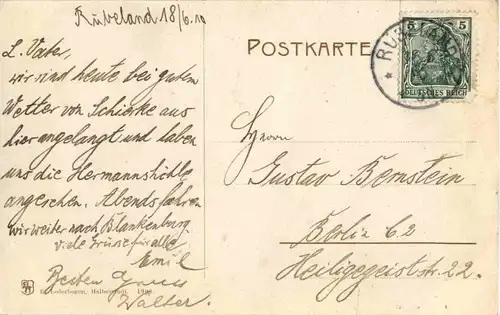 Rübeland 18/6.10
L. Vater,
wir sind heute bei gutem
Wetter von Schierke aus
hier angelangt und haben
uns die Hermannshöhle
angesehen. Abends fahren
wir weiter nach Blankenburg.
viele Grüsse für alle
Emil
Besten Gruss
Walter.
POSTKARTE
5 5
DEUTSCHES REICH
RÜBELAND
Herrn
Gustav Bernstein
Berlin C 2
Heiligegeiststr. 22.